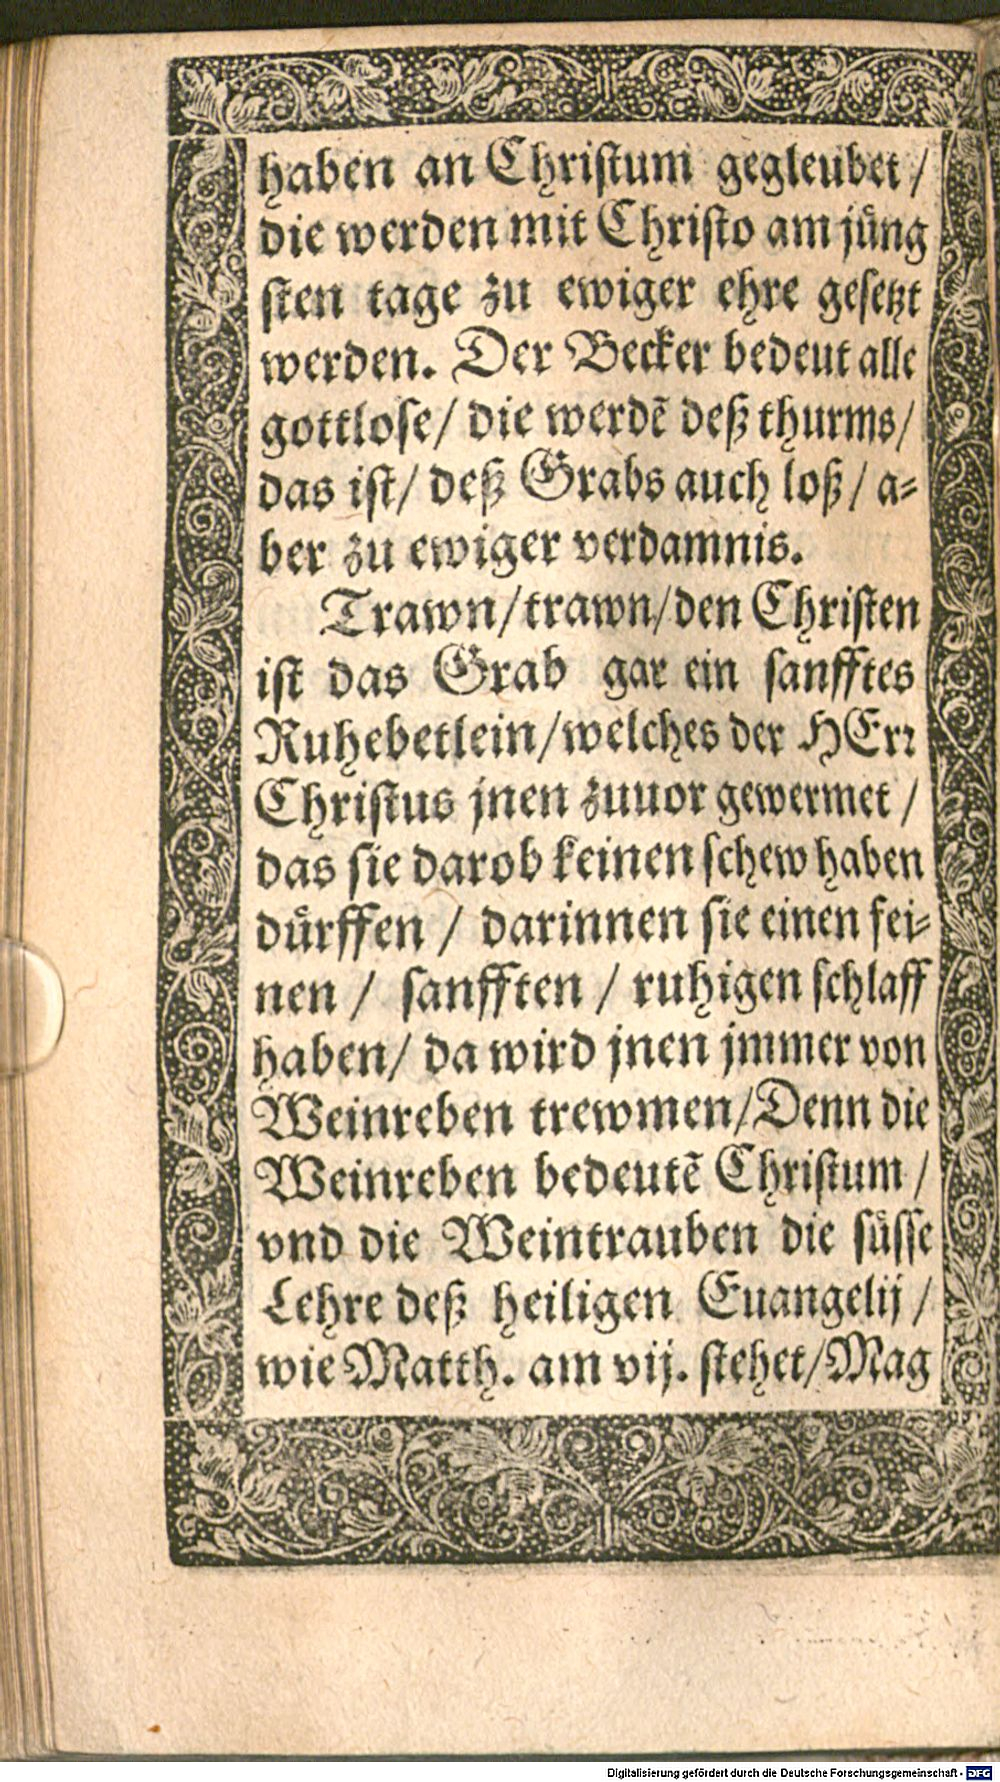 haben an Chriſtum gegleubet /
die werden mit Chriſto am jüng
ſten tage zu ewiger ehre geſetzt
werden. Der Becker bedeut alle
gottloſe/ die werdē deß thurms/
das iſt/ deß Grabs auch loß/ a⸗
ber zu ewiger verdamnis.
Trawn/trawn/den Chriſten
iſt das Grab gar ein ſanfftes
Ruhebetlein/welches der HErꝛ
Chriſtus jnen zuuor gewermet /
das ſie darob keinen ſchew haben
dürffen / darinnen ſie einen fei⸗
nen / ſanfften / ruhigen ſchlaff
haben/ da wird jnen jmmer von
Weinreben trewmen/Denn die
Weinreben bedeutē Chriſtum /
vnd die Weintrauben die ſüſſe
Lehre deß heiligen Euangelij /
wie Matth. am vij. ſtehet/Mag
Digitalisierung gefördert durch die Deutsche Forschungsgemeinschaft - DFG